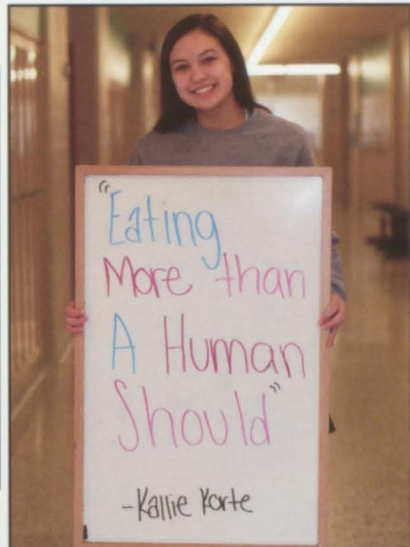 "Eating
More than
A Human
Should"
-Kallie Korte